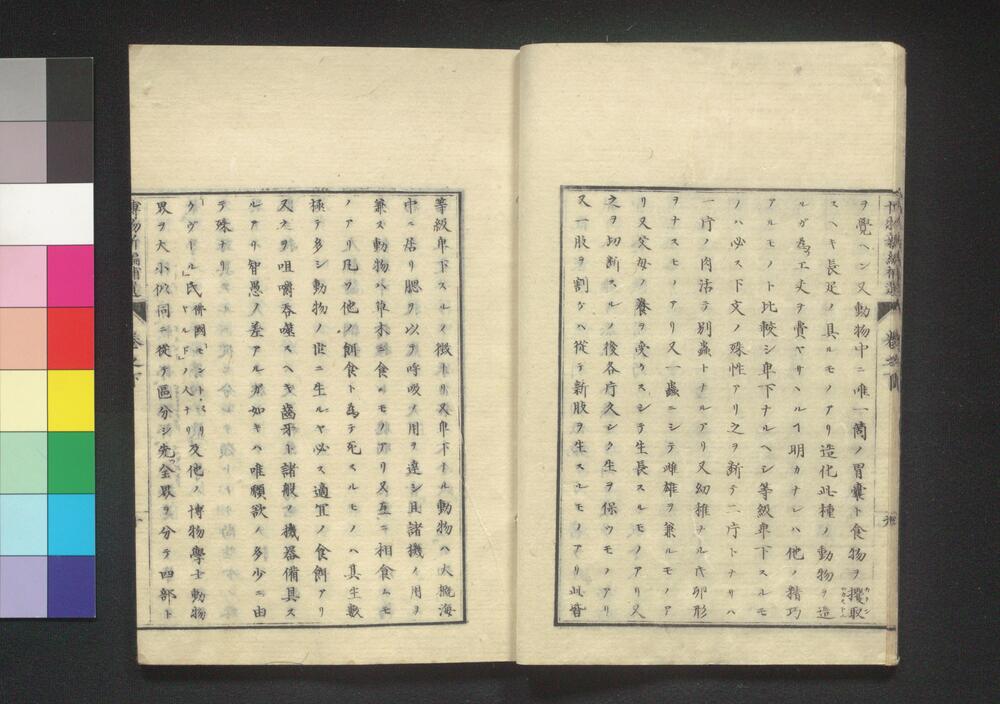 ヲ覺ヘン又動物中ニ唯一箇ノ胃囊ト食物ヲ攫取
スヘキ長足ノ具ルモノアリ造化此種ノ動物ヲ造
ルガ為ニ工丈ヲ費ヤサヘルヿ明カナレハ他ノ精巧
アルモノト比較シ卑下ナルヘシ等級卑下スルモ
ノハ必ス下文ノ殊性アリ之ヲ断テ二片トナリハ
一片ノ肉活テ別蟲トナルアリ又幼稚ナル氏卵形
ヲナスモノアリ又一蟲ニシテ雌雄ヲ兼ルモノア
リ又父母ノ養ヲ受クスシテ生長スルモノアリ又
之ヲ切断スルノ後各片久シク生ヲ保ウモノアリ
又一肢ヲ割ケハ従テ新肢ヲ生スルモノアリ此皆
等級卑下スルノ徴トリ又卑下ナル動物ハ大概海
中ニ居リ腮ヲ以テ呼吸ノ用ヲ達シ且諸機ノ用ヲ
兼ス動物ハ草木ニ食ルモノアリ又互ニ相食ムモ
ノアリ凡ソ他ノ餌食ト為テ死スルモノハ其生數
極テ多シ動物ノ世ニ生ルヤ必ス適宜ノ食餌アリ
又之ヲ咀嚼吞噬スヘキ齒牙ト諸般ノ機器備具ス
ルアリ智愚ノ差アルガ如キハ唯願欲ノ多少ニ由
テ殊ナリ
クヴール氏佛國モントベリヤルドノ人ナリ及他ノ博物學士動物
界ヲ大小似同ニ従テ區分シ先全界ヲ分テ四部ト